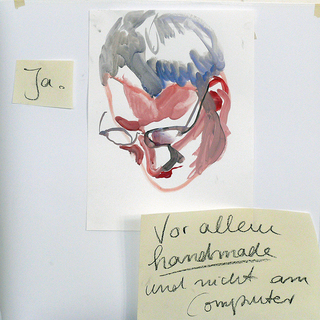 Ja.
Vor allem
handmade
und nicht am
Computer